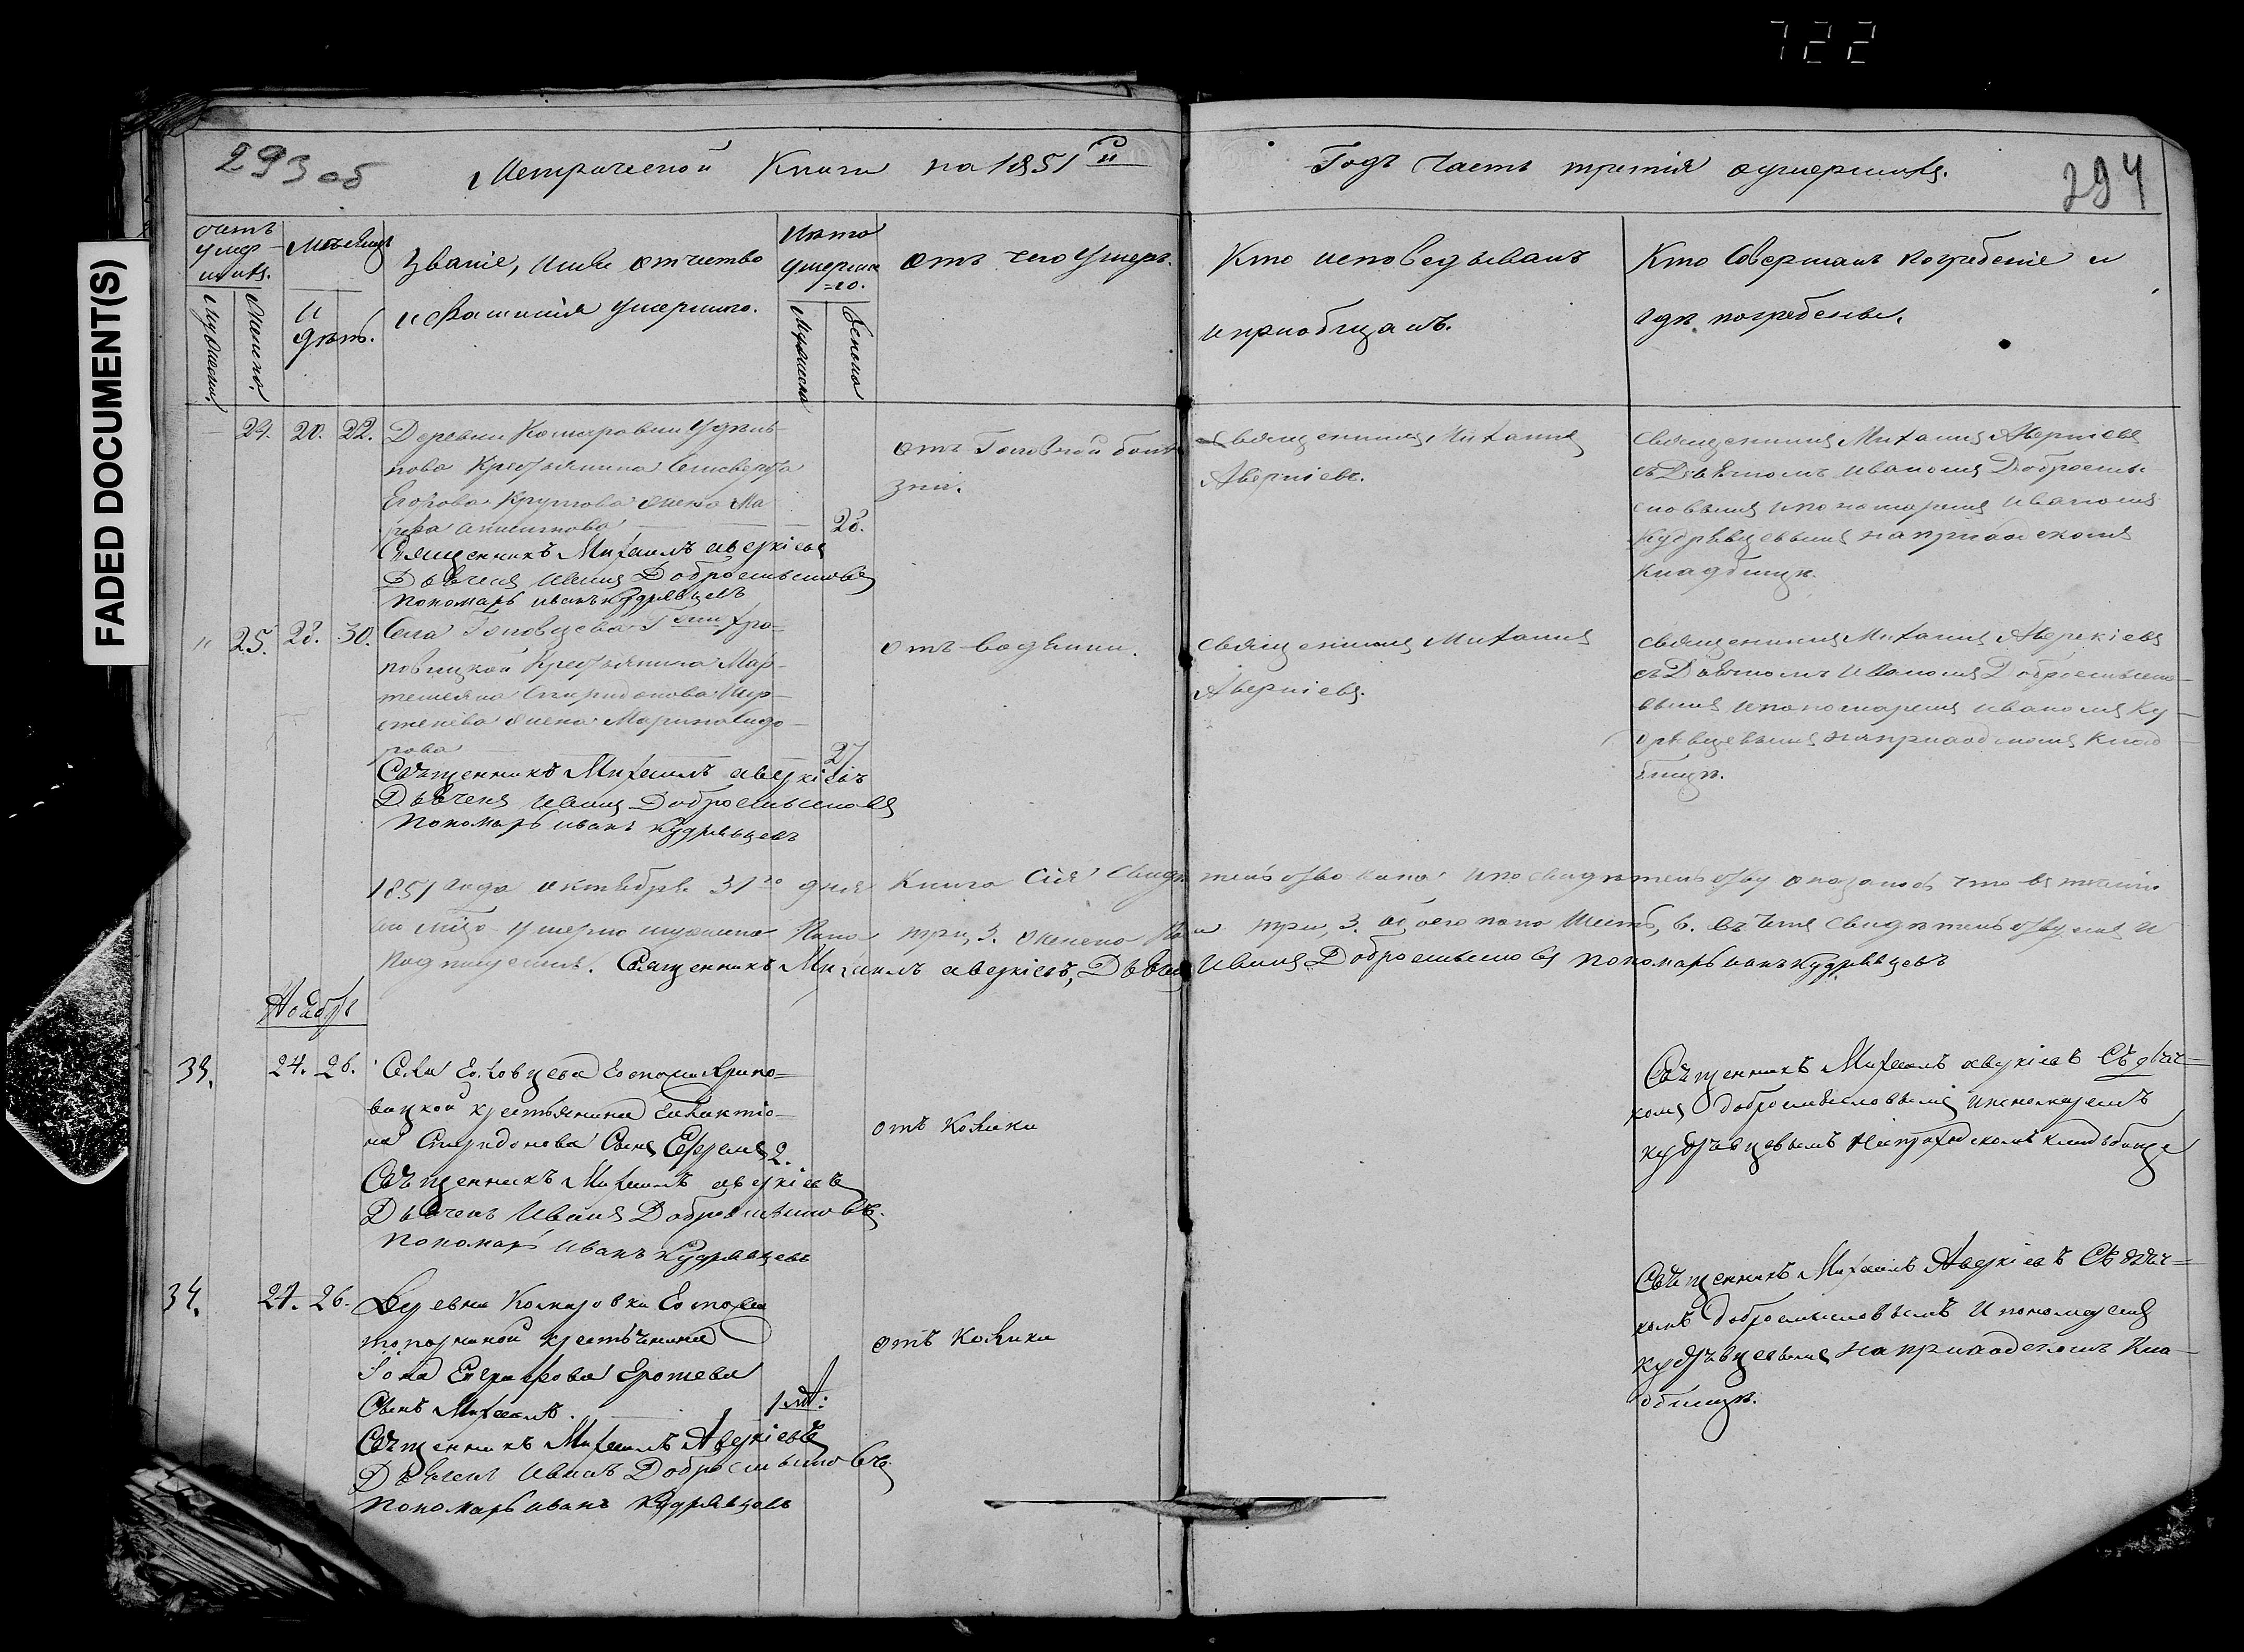 722
FADED DOCUMENT(S)
293 об
Метрической Книги на 1851 й
Годъ Часть третія оумершихъ.
294
счетъ умер-шихъ.
Мужеска.
Женска.
Мѣсяцъ
и день.
Званіе, имя отчество
и фамилія умершаго.
Лѣта умерша=го.
Мужеска
Женска
отъ чего умеръ.
Кто исповѣдывалъ
и пріобщалъ.
Кто Совершалъ погребеніе и
гдѣ погребены.
24. 20. 22. Деревни Комаровки удѣль-
нова Крестьянина
Егорова Круглова жена Ма
28.
отъ Головной болѣ
зни.
Священникъ Михаилъ Аверкіевъ
Дьячекъ Иванъ Добросмысловъ
Пономарь Иванъ Кудрявцевъ
Священникъ Михаилъ
Аверкіевъ.
Священникъ Михаилъ Аверкіевъ
съ Дьячкомъ Иваномъ Добросмы-
словымъ и пономаремъ Иваномъ
Кудрявцевымъ на приходскомъ
Кладбищѣ.
" 25. 28. 30. Села Головцева Г-жи Хра-
повицкой Крестьянина Мар-
Спиридонова
жена Марина Сидо-
рова
27
отъ водяни.
Священникъ Михаилъ Аверкіевъ
Дьячекъ Иванъ Добросмысловъ
Пономарь Иванъ Кудрявцевъ
Священникъ Михаилъ
Аверкіевъ.
Священникъ Михаилъ Аверкіевъ
съ Дьячкомъ Иваномъ Добросмысло-
вымъ и пономаремъ Иваномъ Ку-
дрявцевымъ на приходскомъ Клад
бищѣ.
1851 года октября 31го дня Книга Сія Свидѣтельствована и по свидѣтельству оказалось что въ теченіи
умерло мужеска пола три, 3. женска пола три, 3. обоего пола Шесть, 6. въ чемъ свидѣтельствуемъ и
подписуемъ. Священникъ Михаилъ Аверкіевъ, Дьячекъ Иванъ Добросмысловъ пономарь Иванъ Кудрявцевъ
Ноябрь
33. 24. 26. Села Головцева Госпожи Храпо=
вицкой крестьянина
на Спиридонова Сынъ 2.
отъ Колики
Священникъ Михаилъ Аверкіевъ
Дьячекъ Иванъ Добросмысловъ.
Пономарь Иванъ Кудрявцевъ
Священникъ Михаилъ Аверкіевъ Съ дьяч=
комъ Добросмысловымъ и пономаремъ
Кудрявцевымъ на приходскомъ кладбище
34. 24. 26. Деревни Комаровки Госпожи
крестьянина
Сынъ Михаилъ. 1 лѣт:
отъ Колики
Священникъ Михаилъ Аверкіевъ
Дьячекъ Иванъ Добросмысловъ
Пономарь Иванъ Кудрявцевъ
Священникъ Михаилъ Аверкіевъ Съ дьяч=
комъ Добросмысловымъ и пономаремъ
Кудрявцевымъ на приходскомъ Кла-
дбищѣ.